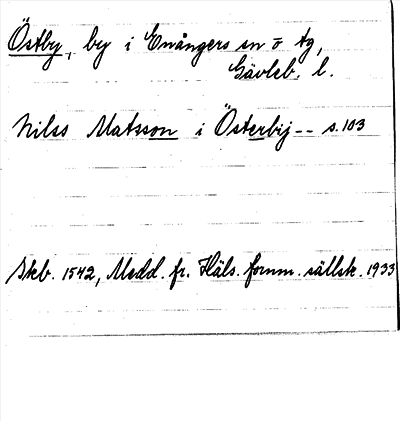 Östby, by i Enångers sn o tg,
Gävleb. l.
Nilss Matsson i Österbij -- s. 103
Skb. 1542, Medd. fr. Häls. fornm. sällsk. 1933